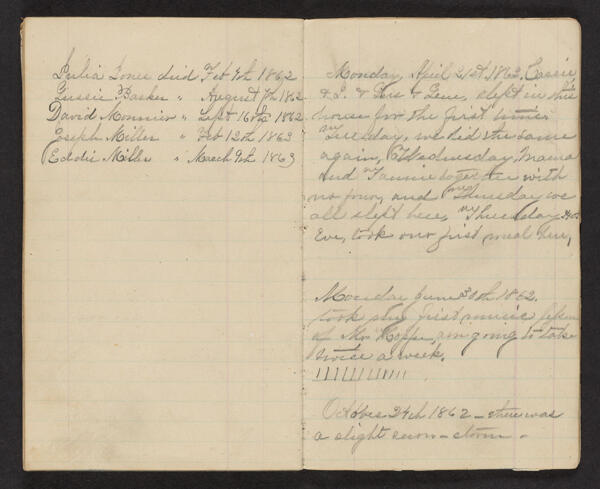 Julia Jones died Feb 9th 1862
Gussie Barker " August 8th 1862
David Monnier " Sept 16th 1862
Joseph Miller " Feb 12th 1863
Eddie Miller " March 9th 1863
Monday, April 21st, 1862, Cassie,
& I. & & Gene, slept in this
house for the first time.
Tuesday, we did the same
again, Wednesday, Mama
and Fannie together with
us four, and Thursday we
all slept here, Thursday
Eve, took our first meal here,
Monday June 30th 1862.
took my first music lesson
of Mr. am going to take
twice a week.
October 24th 1862 - there was
a slight snow-storm.